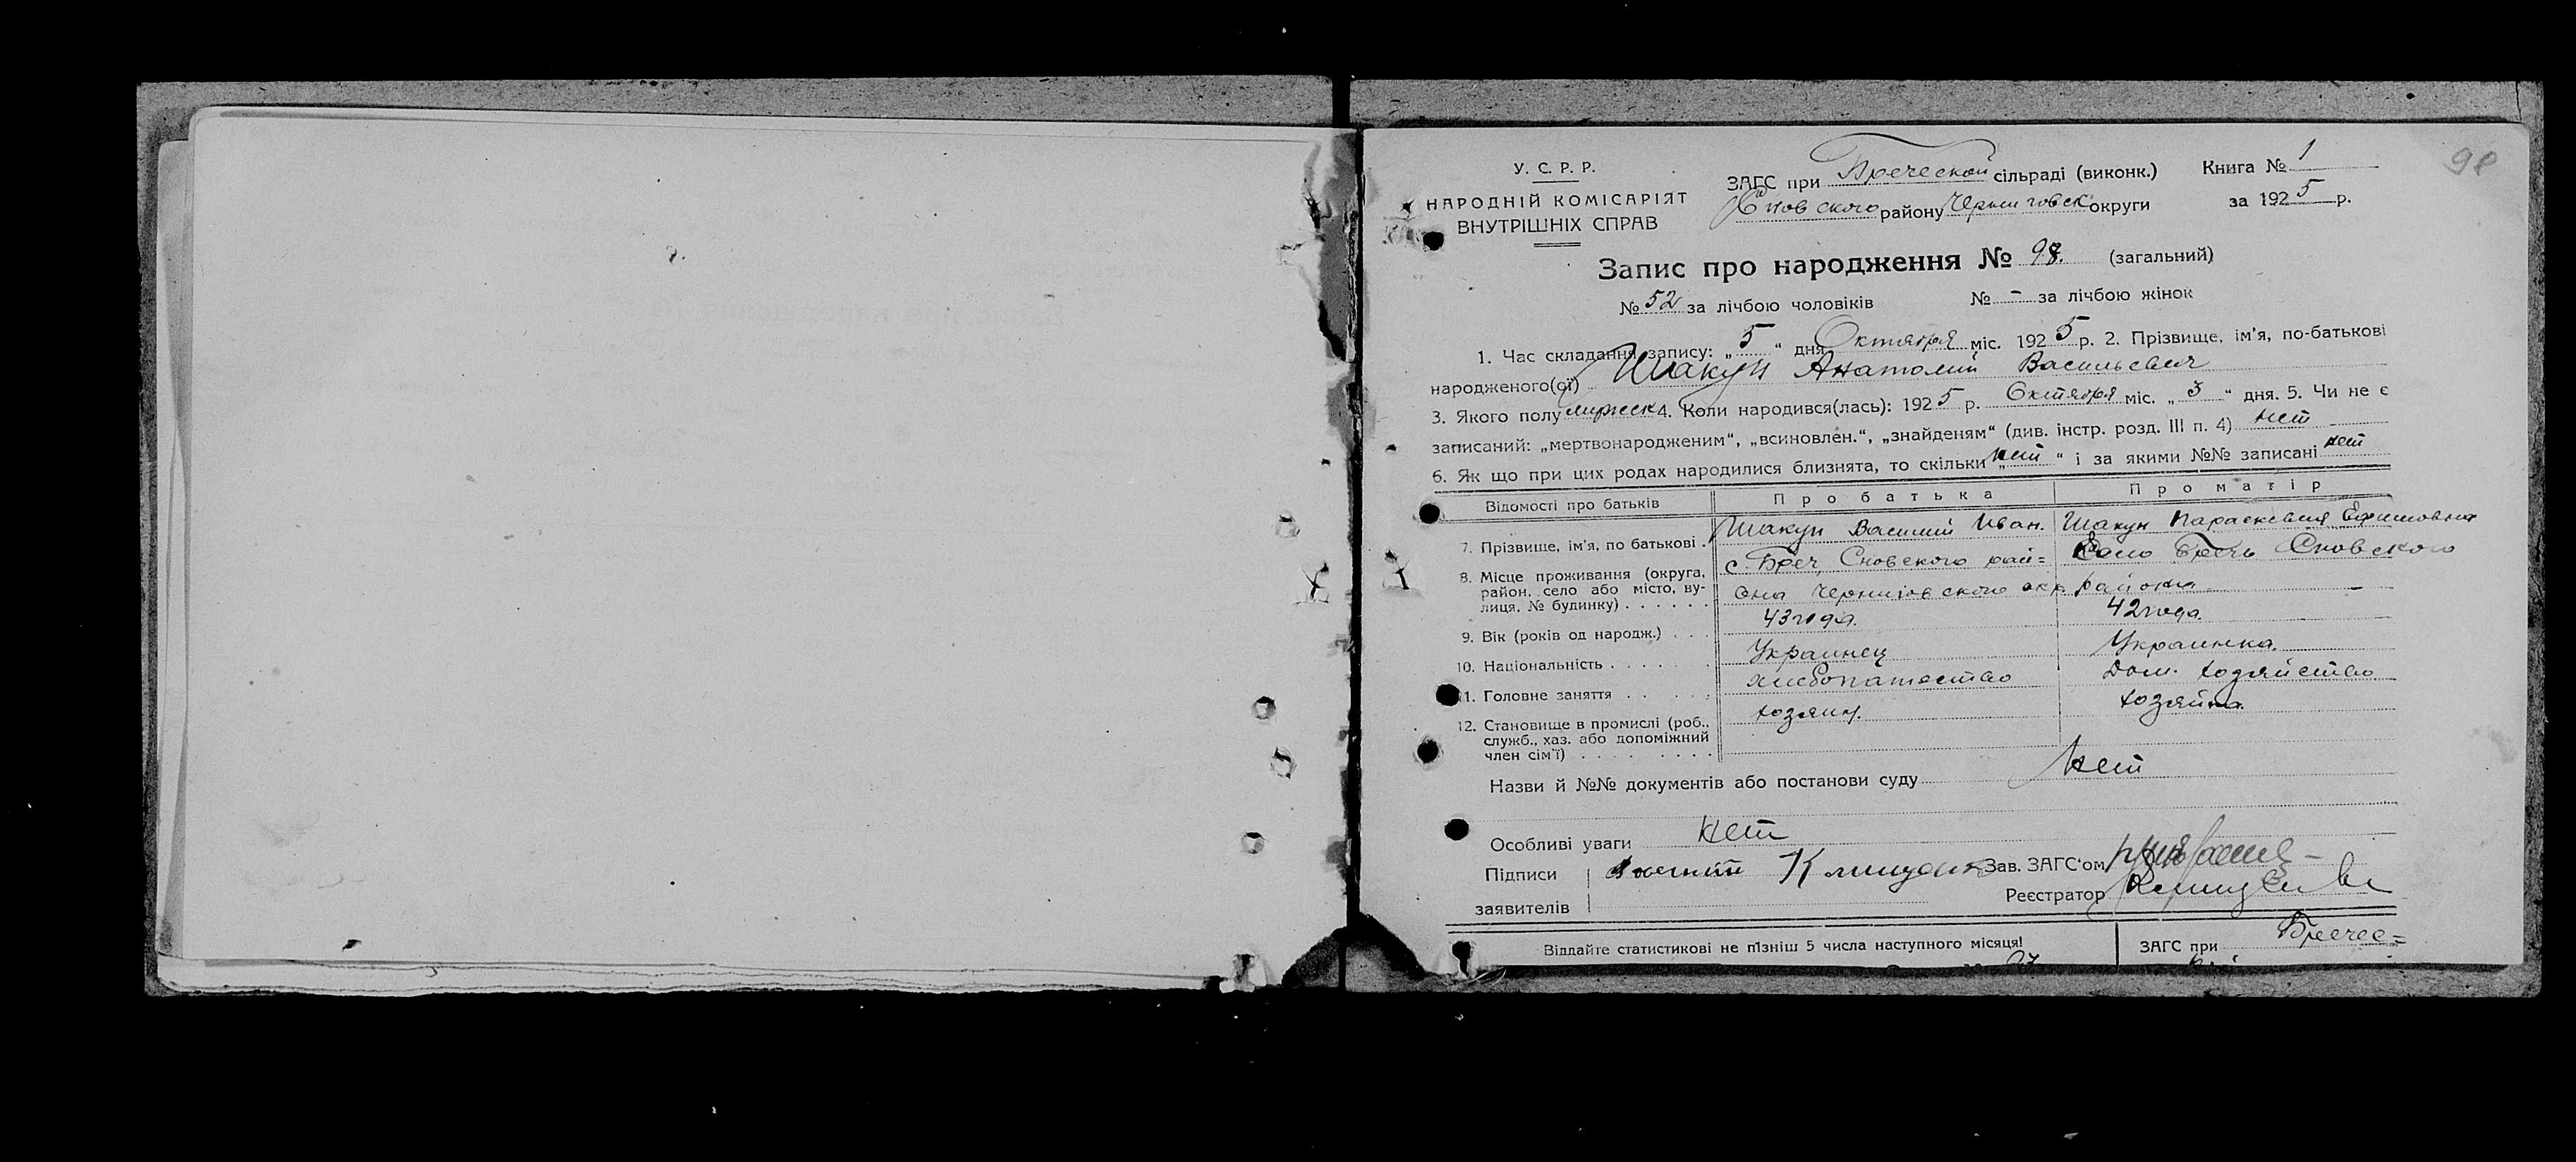 98
У. С. Р. Р.
НАРОДНІЙ КОМІСАРІЯТ
ВНУТРІШНІХ СПРАВ
ЗАГС при Бреческой сільраді (виконк.) Книга № 1
Сновского району Черниговск округи за 1925 р.
Запис про народження № 98. (загальний)
№ 52 за лічбою чоловіків № - за лічбою жінок
1. Час складання запису: „5“ дня Октября міс. 1925 р. 2. Прізвище, ім'я, по-батькові
народженого(ої) Шакун Анатолий Васильевич
3. Якого полу мужеск 4. Коли народився(лась): 1925 р. Октября міс. „3“ дня. 5. Чи не є
записаний: „мертвонародженим“, „всиновлен.“, „знайденям“ (див. інстр. розд. III п. 4) нет
6. Як що при цих родах народилися близнята, то скільки „нет“ і за якими №№ записані нет
Відомості про батьків Про батька Про матір
7. Прізвище, ім'я, по батькові . Шакун Василий Иван. Шакун Параскевия Ефимовна
8. Місце проживання (округа, район, село або місто, вулиця, № будинку) . . . . . . с. Бреч, Сновского рай= она Черниговского окр. Село Бречь Сновского района
9. Вік (років од народж.) . . . 43 года. 42 года.
10. Національність . . . . . . . Украинец Украинка.
11. Головне заняття . . . . . . хлебопашество Дом. хозяйство
12. Становище в промислі (роб., служб., хаз. або допоміжний член сім'ї) . . . . . . . . хозяин. хозяйка.
Назви й №№ документів або постанови суду нет
Особливі уваги нет
Підписи
заявителів
Зав. ЗАГС'ом
Реєстратор
Віддайте статистикові не пізніш 5 числа наступного місяця!
ЗАГС при Бречес=